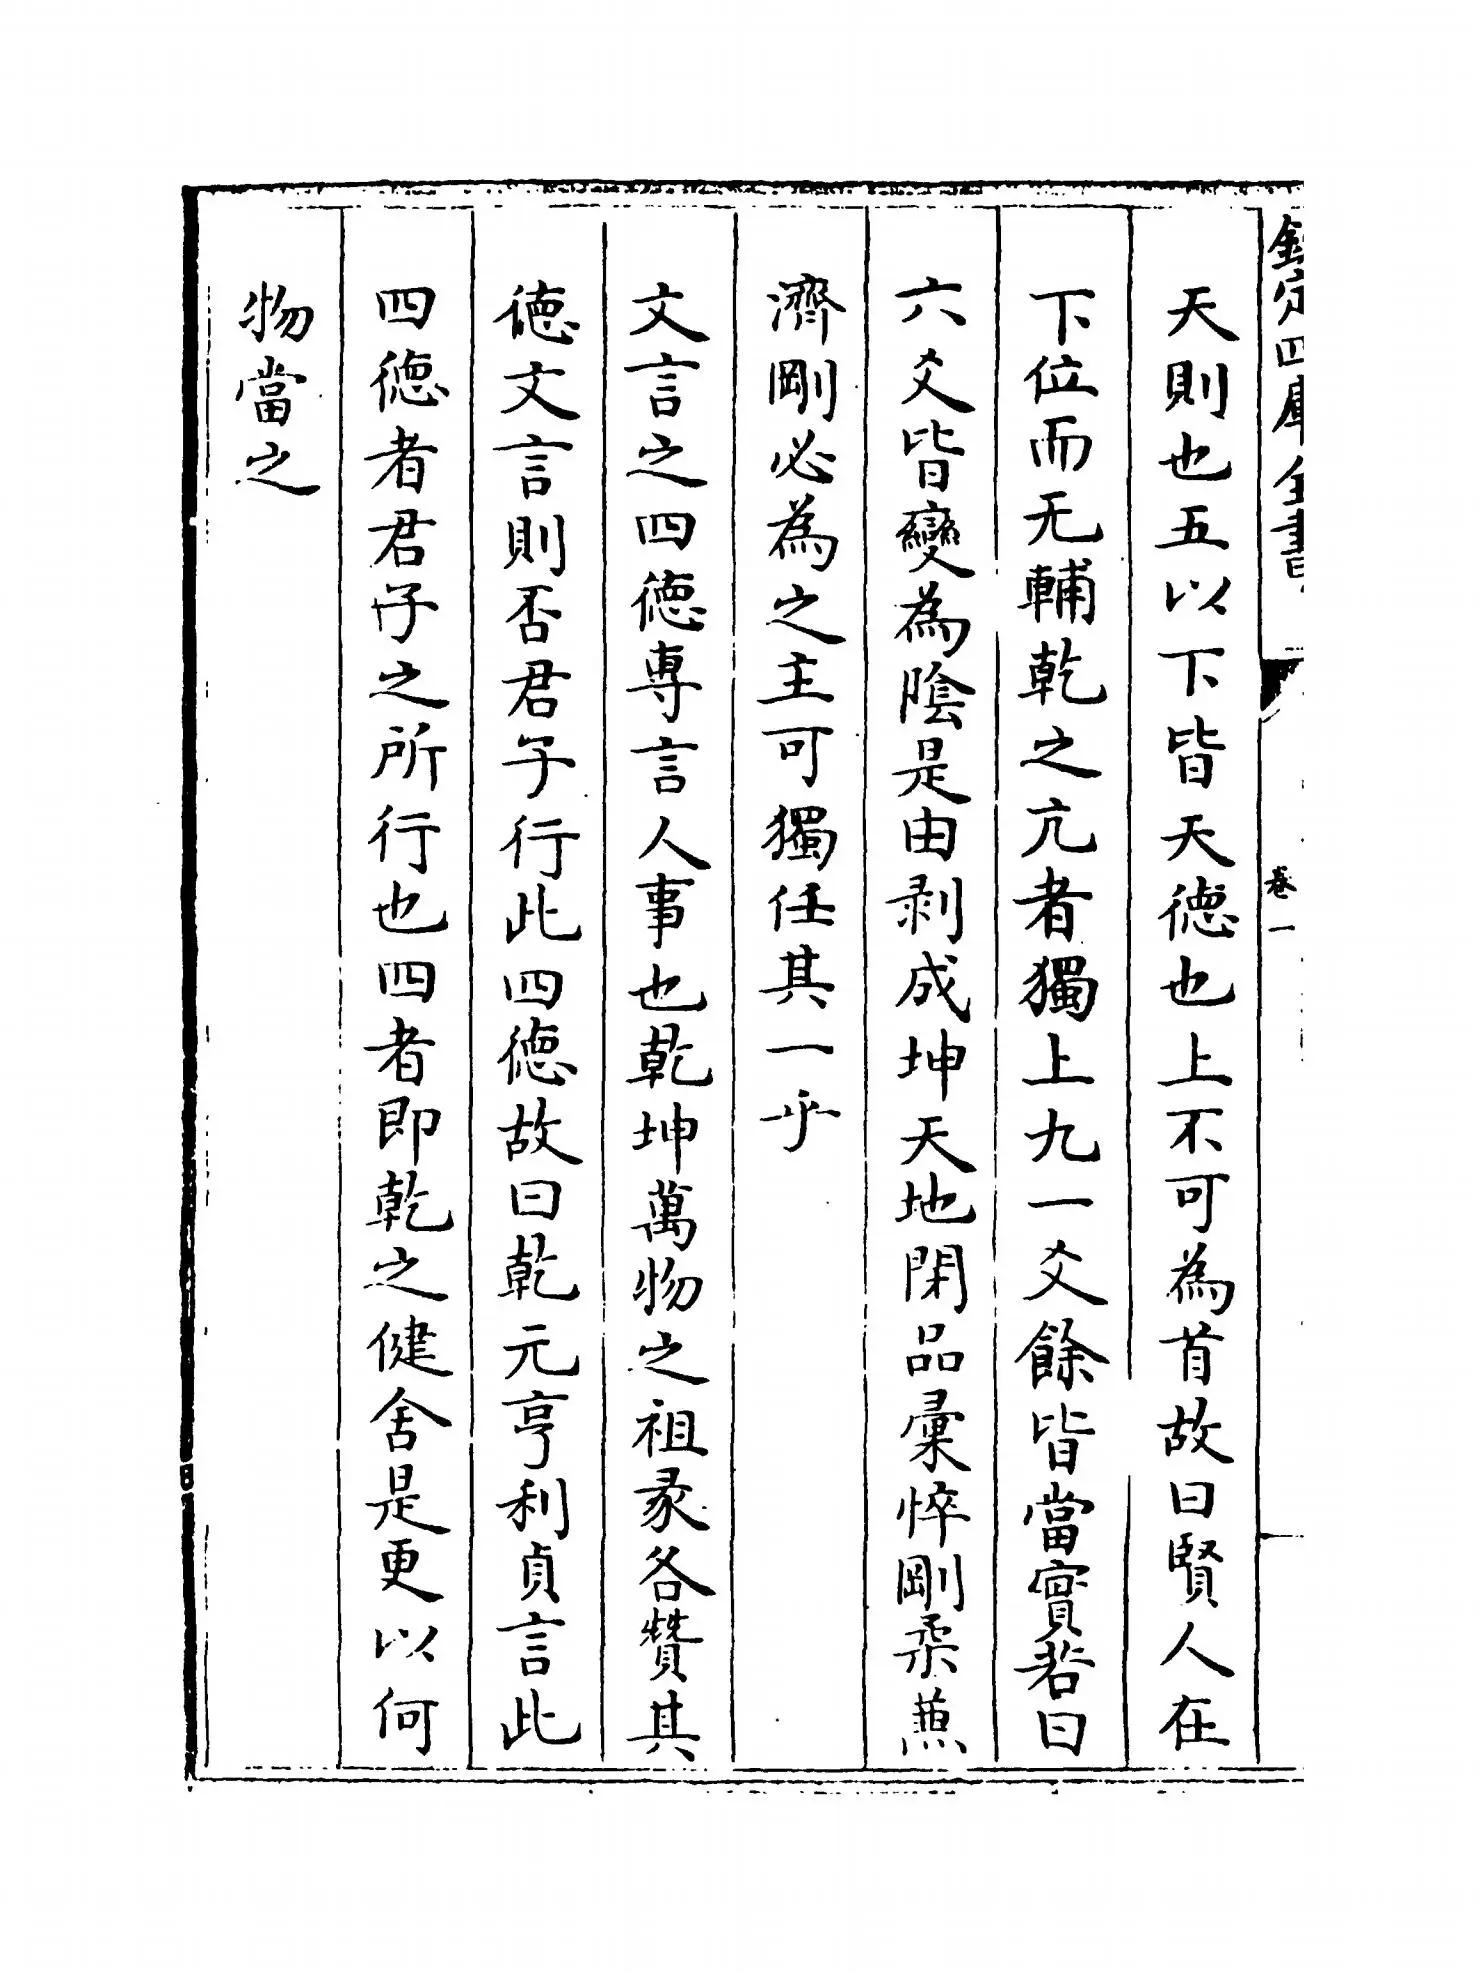 欽定四庫全書
卷一
天則也五以下皆天德也上不可為首故曰賢人在
下位而无輔乾之亢者獨上九一爻餘皆當實若曰
六爻皆變為陰是由剥成坤天地閉品彙悴剛柔兼
濟剛必為之主可獨任其一乎
文言之四德專言人事也乾坤萬物之祖彖各贊其
德文言則否君子行此四德故曰乾元亨利貞言此
四德者君子之所行也四者即乾之健舍是更以何
物當之